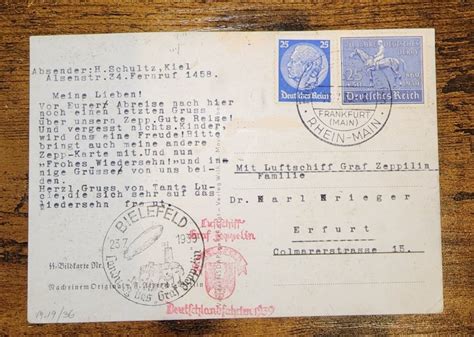 Absender: H. Schultz, Kiel
Alsenstr. 34. Fernruf 1458.
Meine Lieben!
Vor Eurer Abreise nach hier
noch einen letzten Gruss
über unsern Zepp. Gute Reise!
Und vergesst nichts, Kinder,
wird das eine Freude! Bitte
bringt auch meine andere
Zepp-Karte mit. Und nun
"Frohes Wiedersehn! und in
nige Grüsse von uns bei-
den.
Herzl. Gruss von Tante Lu-
cie, die sich sehr auf das
Wiedersehn freut
25 25
Deutsches Reich
25
Deutsches Reich
FRANKFURT
(MAIN)
RHEIN-MAIN
Mit Luftschiff Graf Zeppilin
Familie
Dr. Karl Krieger
Erfurt
Colmarerstrasse 15.
BIELEFELD
23.7 1939
Landung des Graf Zeppelin
Luftschiff
Graf Zeppelin
Deutschlandfahrt 1939
Bildkarte Nr.
Nach einem Original
19.19/36